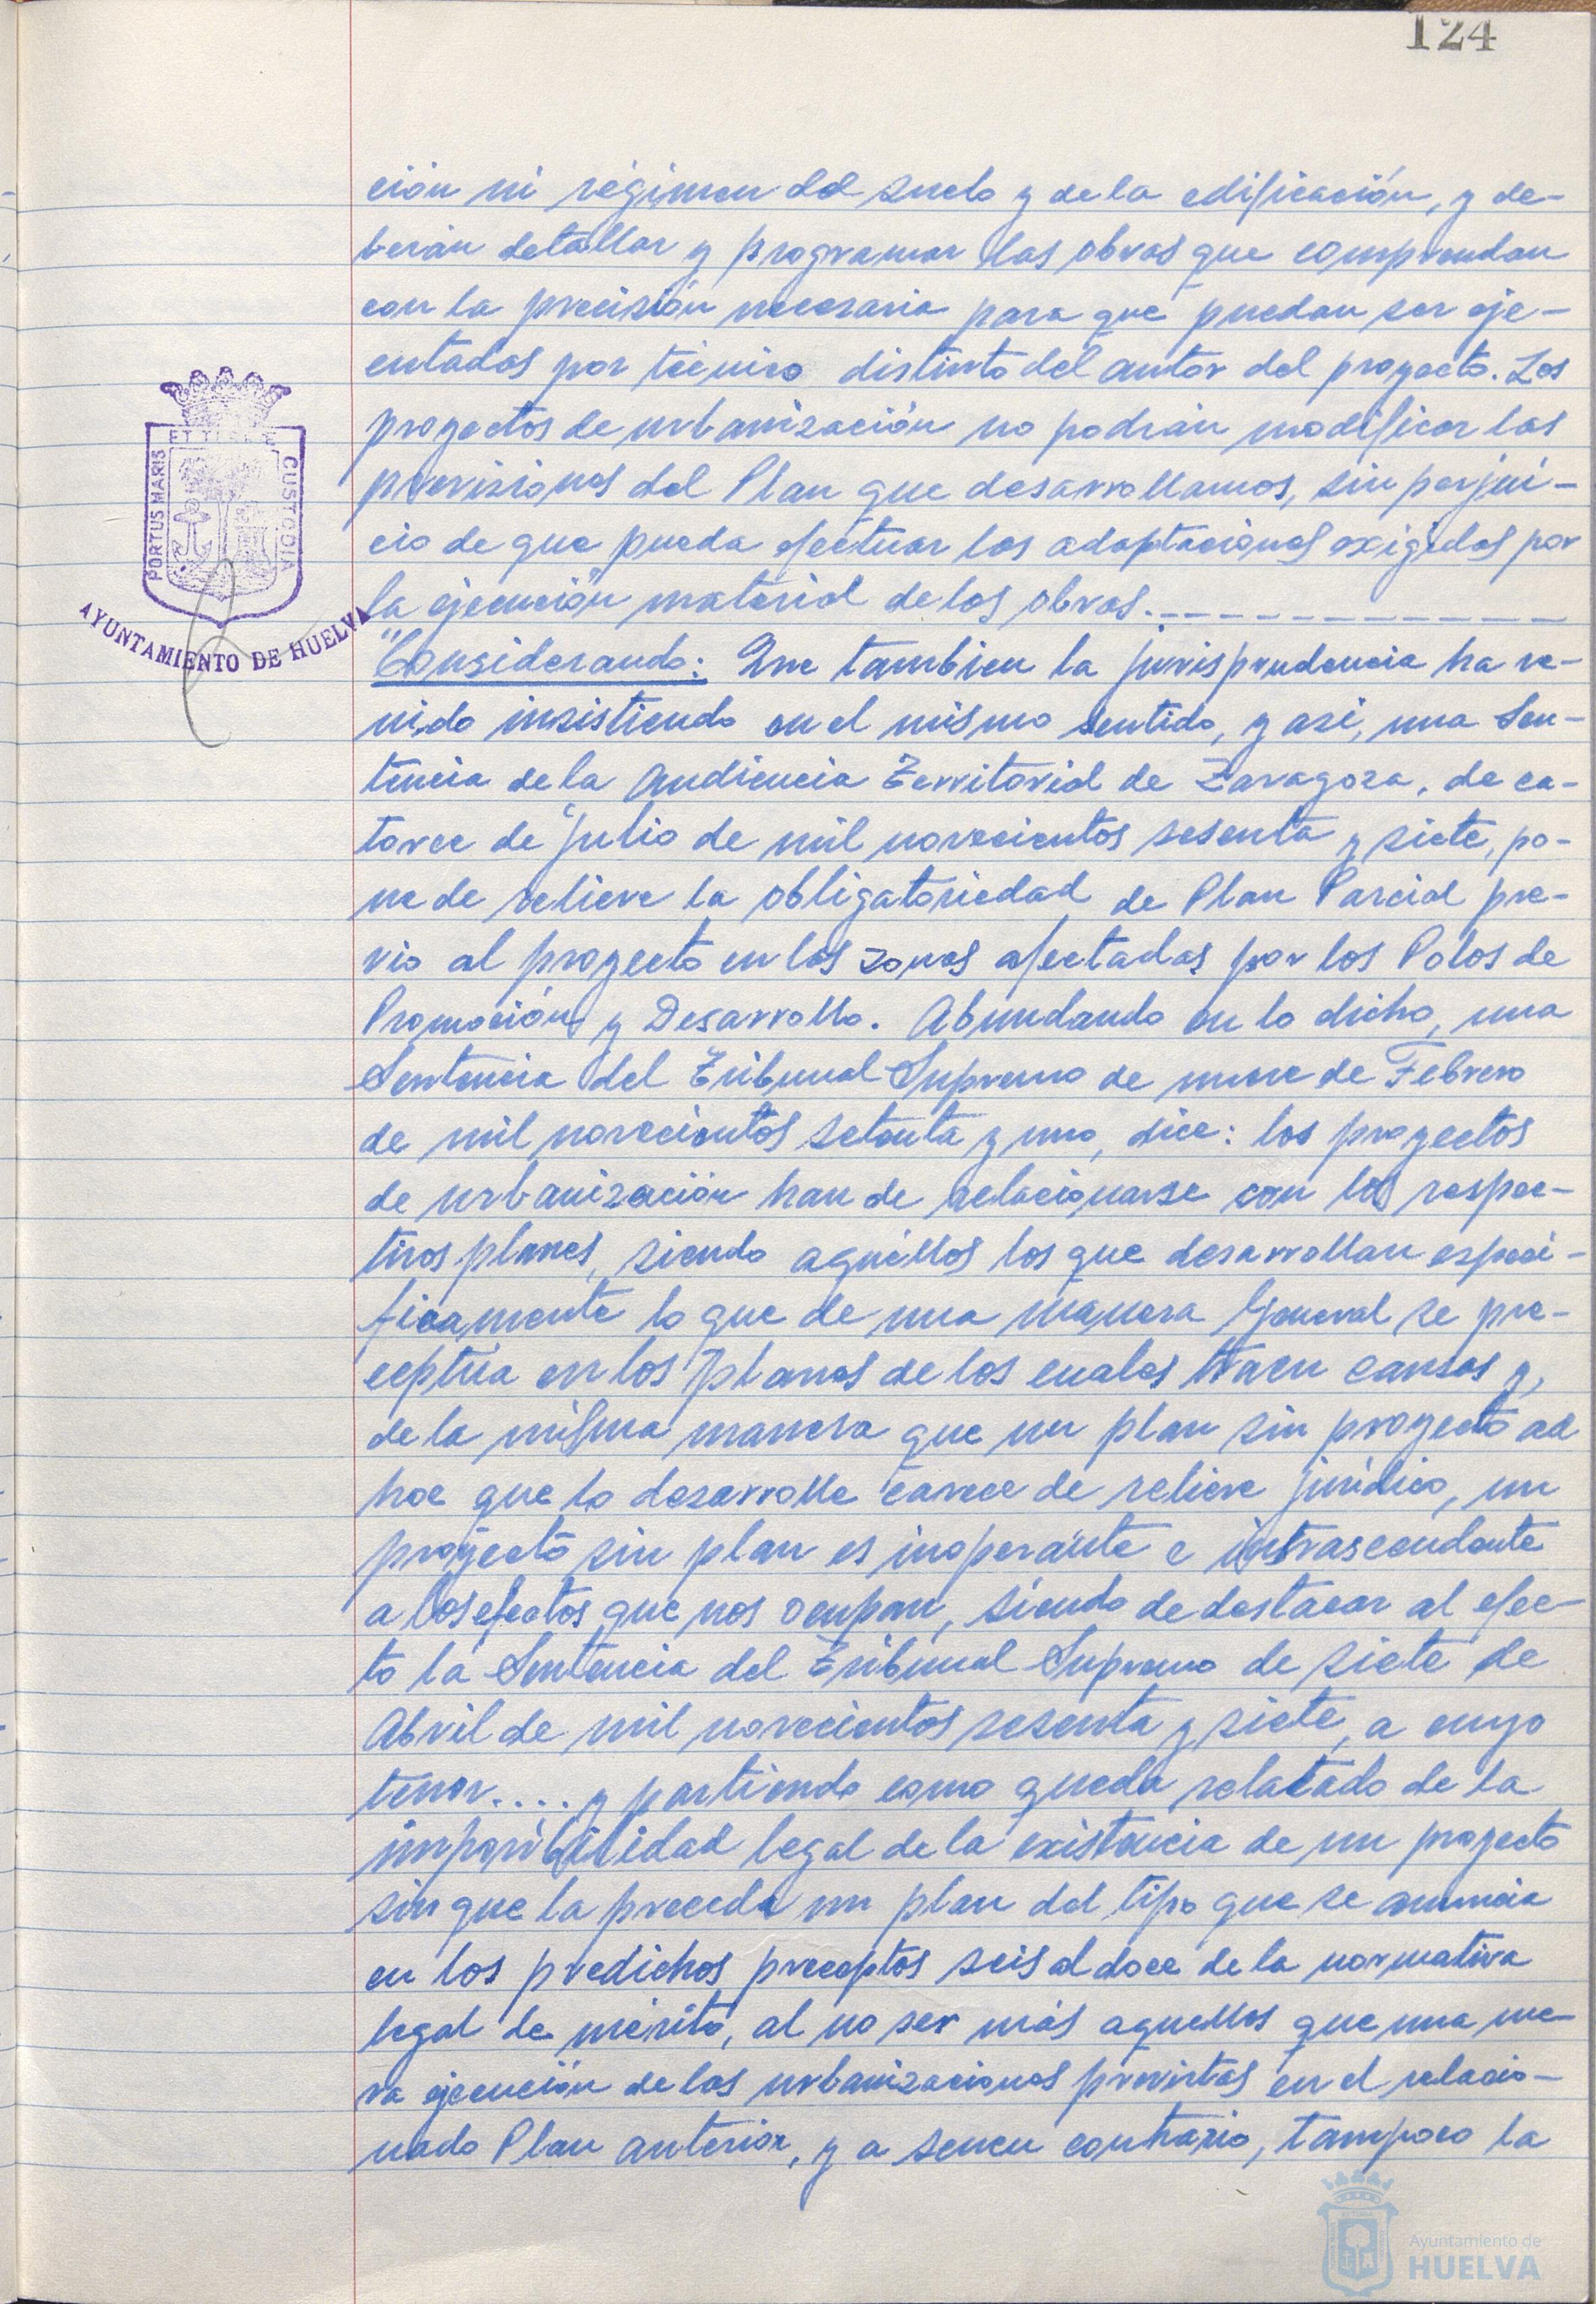 124
ción ni régimen del suelo y de la edificación, y de-
berán detallar y programar las obras que comprendan
con la precisión necesaria para que puedan ser eje-
cutadas por técnico distinto del autor del proyecto. Los
proyectos de urbanización no podrán modificar las
previsiones del Plan que desarrollamos, sin perjui-
cio de que pueda efectuar las adaptaciones exigidas por
la ejecución material de las obras.
"Considerando: Que tambien la jurisprudencia ha ve-
nido insistiendo en el mismo sentido, y asi, una Sen-
tencia de la Audiencia Territorial de Zaragoza, de ca-
torce de julio de mil novecientos sesenta y siete, po-
ne de relieve la obligatoriedad de Plan Parcial pre-
vio al proyecto en las zonas afectadas por los Polos de
Promoción y Desarrollo. Abundando en lo dicho, una
Sentencia del Tribunal Supremo de nueve de Febrero
de mil novecientos setenta y uno, dice: los proyectos
de urbanización han de relacionarse con los respec-
tivos planes, siendo aquéllos los que desarrollan especí-
ficamente lo que de una manera General se pre-
ceptúa en los planes de los cuales traen causas y,
de la misma manera que un plan sin proyecto ad
hoc que lo desarrolle carece de relieve jurídico, un
proyecto sin plan es inoperante e intrascendente
a los efectos que nos ocupan, siendo de destacar al efec-
to la Sentencia del Tribunal Supremo de siete de
Abril de mil novecientos sesenta y siete, a cuyo
tenor.... y partiendo como queda relatado de la
imposibilidad legal de la existencia de un proyecto
sin que la preceda un plan del tipo que se anuncia
en los predichos preceptos seis al doce de la normativa
legal de mérito, al no ser más aquellos que una me-
ra ejecución de las urbanizaciones previstas en el relacio-
nado Plan anterior, y a sensu contrario, tampoco la
PORTUS MARIS
ET TERRAE
CUSTODIA
AYUNTAMIENTO DE HUELVA
Ayuntamiento de
HUELVA